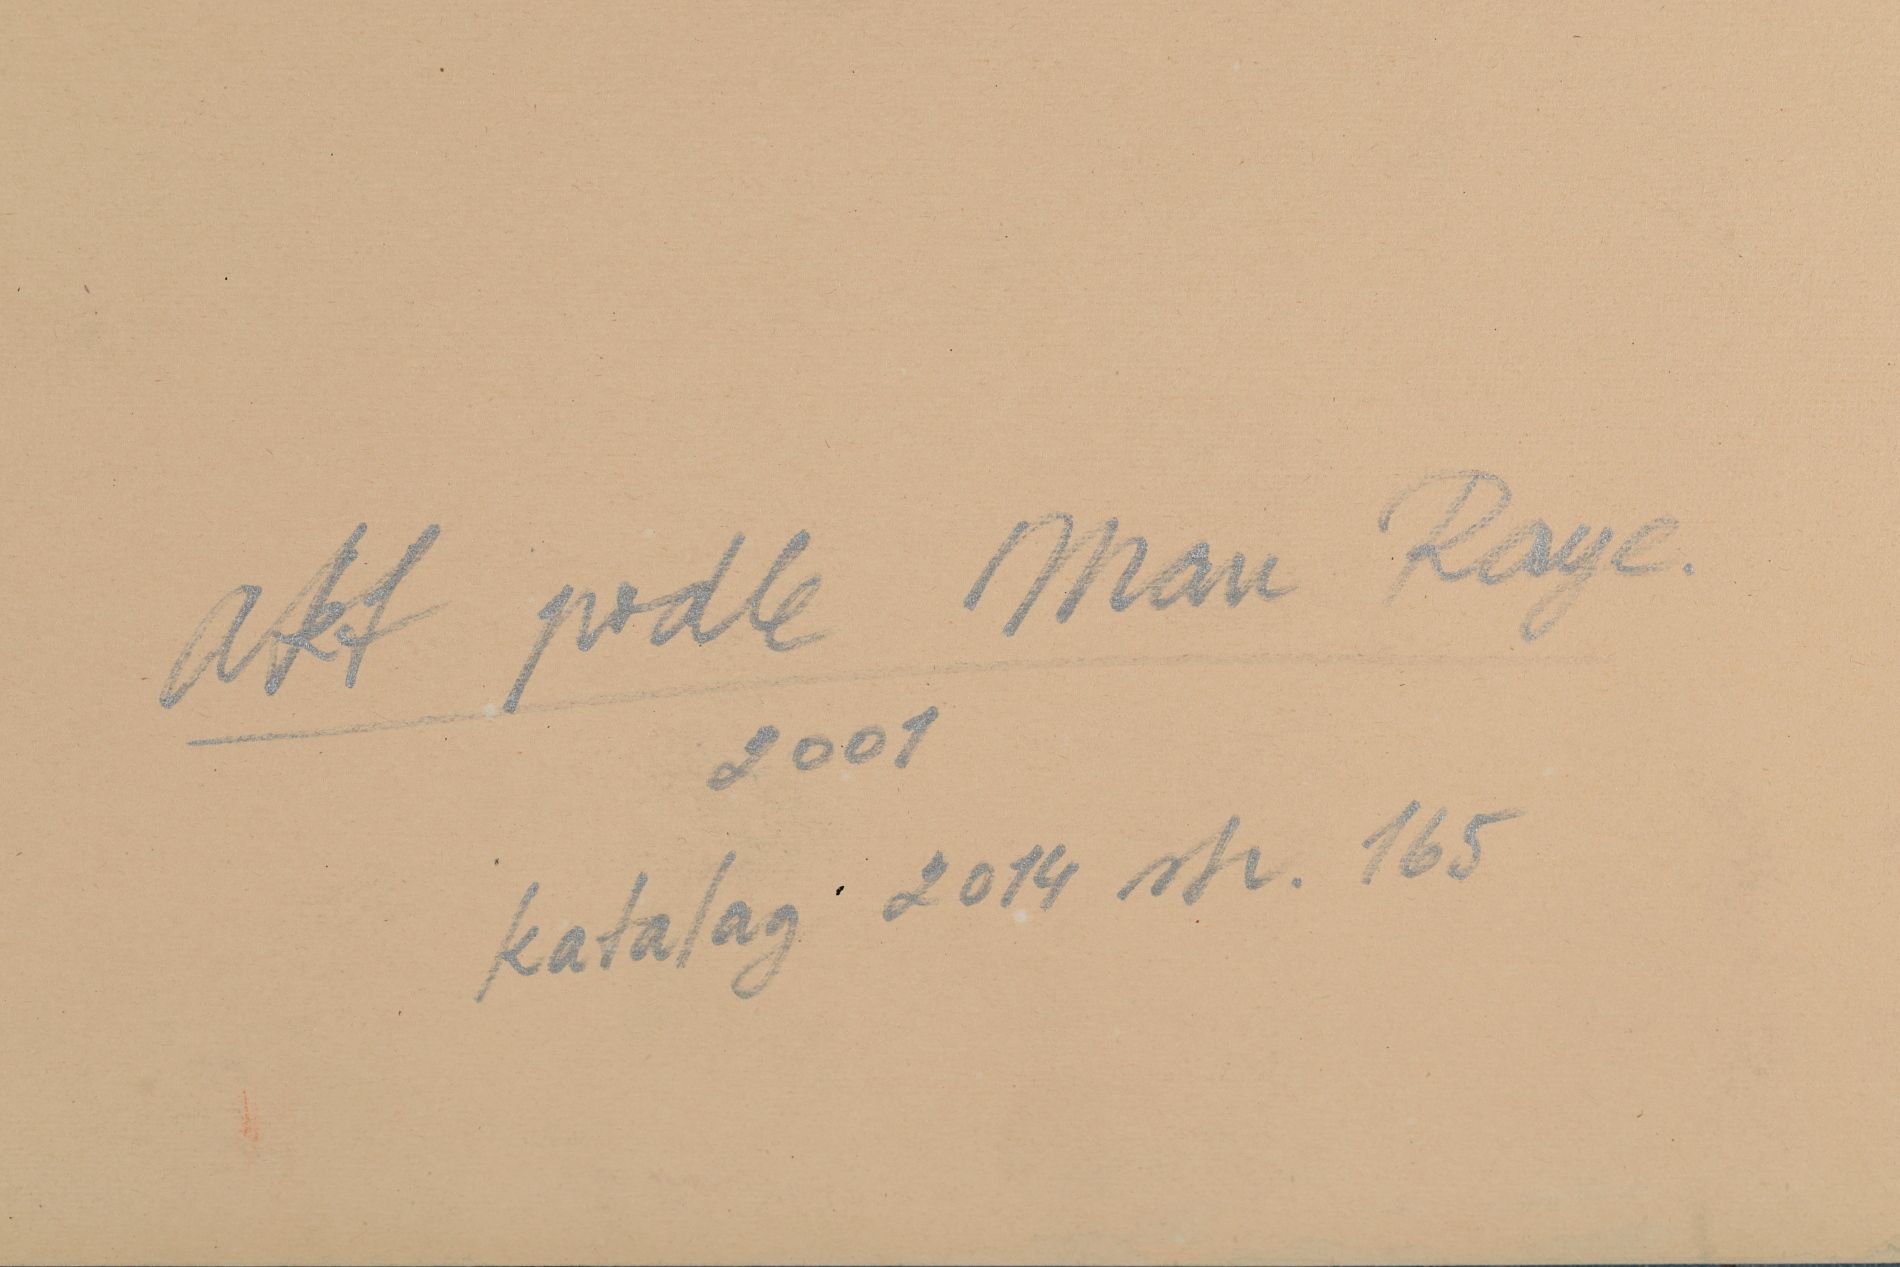 akt podle Man Raye.
2001
katalog 2014 str. 165